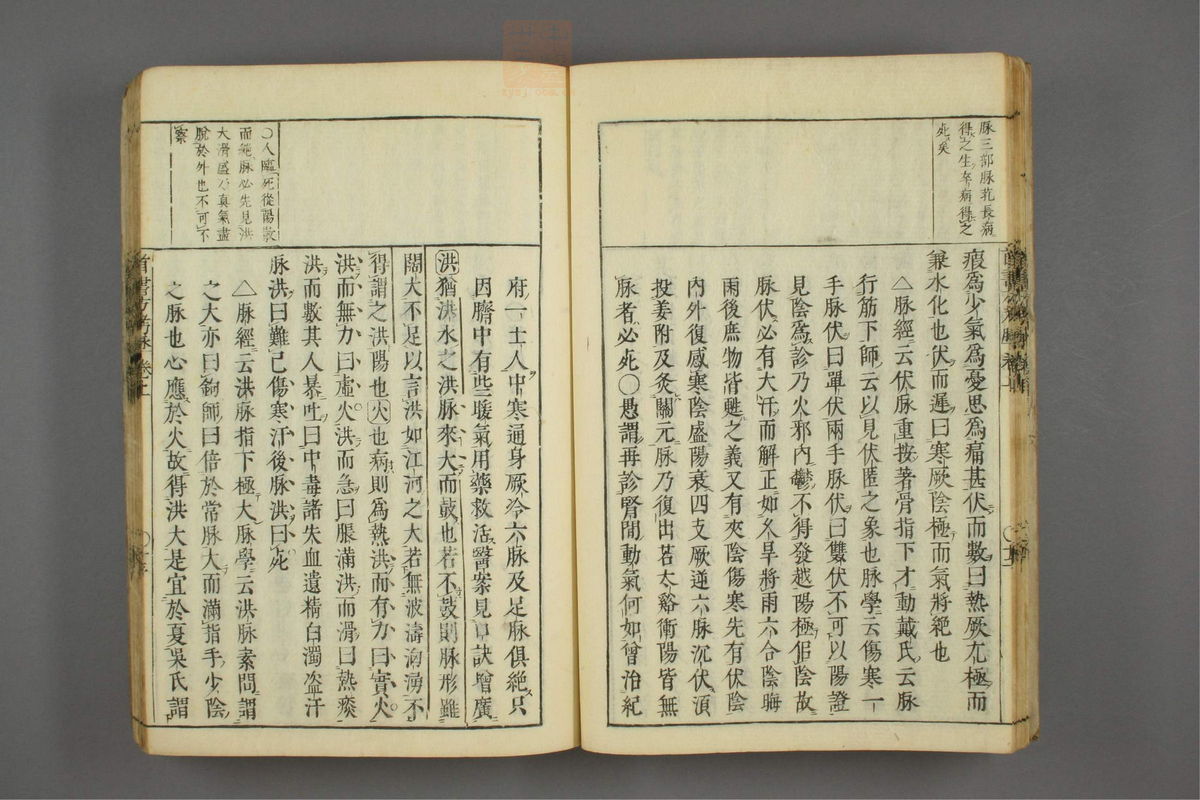 脉三部脉乳長病
得之生卒病得之
死矣
痕爲少氣爲憂思爲痛甚伏而數曰熱厥亢極而
兼水化也伏而遲曰寒厥陰極而氣將絶也
△脉經云伏脉重按著骨指下才動戴氏云脉
行筋下師云以見伏匿之象也脉學云傷寒一
手脉伏曰單伏兩手脉伏曰雙伏不可以陽證
見陰爲診乃火邪内鬱不得發越陽極佀陰故
脉伏必有大汗而解正如久旱將雨六合陰晦
雨後庶物皆甦之義又有夾陰傷寒先有伏陰
内外復感寒陰盛陽衰四支厥逆六脉沉伏湏
投姜附及灸關元脉乃復出若太谿衝陽皆無
脉者必死○愚謂再診腎間動氣何如曾治紀
○人臨死從陽散
而絶脉必先見洪
大滑盛乃真氣盡
脱於外也不可不
察
府一士人中寒通身厥冷六脉及足脉俱絶只
因臍中有些暖氣用藥救活醫案見口訣增廣
洪猶洪水之洪脉來大而鼓也若不鼓則脉形雖
闊大不足以言洪如江河之大若無波濤洶湧不
得謂之洪陽也火也病則爲熱洪而有力曰實火
洪而無力曰虛火洪而急曰脹滿洪而滑曰熱痰
洪而數其人暴吐曰中毒諸失血遺精白濁盗汗
脉洪曰難已傷寒汗後脉洪曰死
△脉經云洪脉指下極大脉學云洪脉素問謂
之大亦曰鉤師曰倍於常脉大而滿指手少陰
之脉也心應於火故得洪大是宜於夏吳氏謂